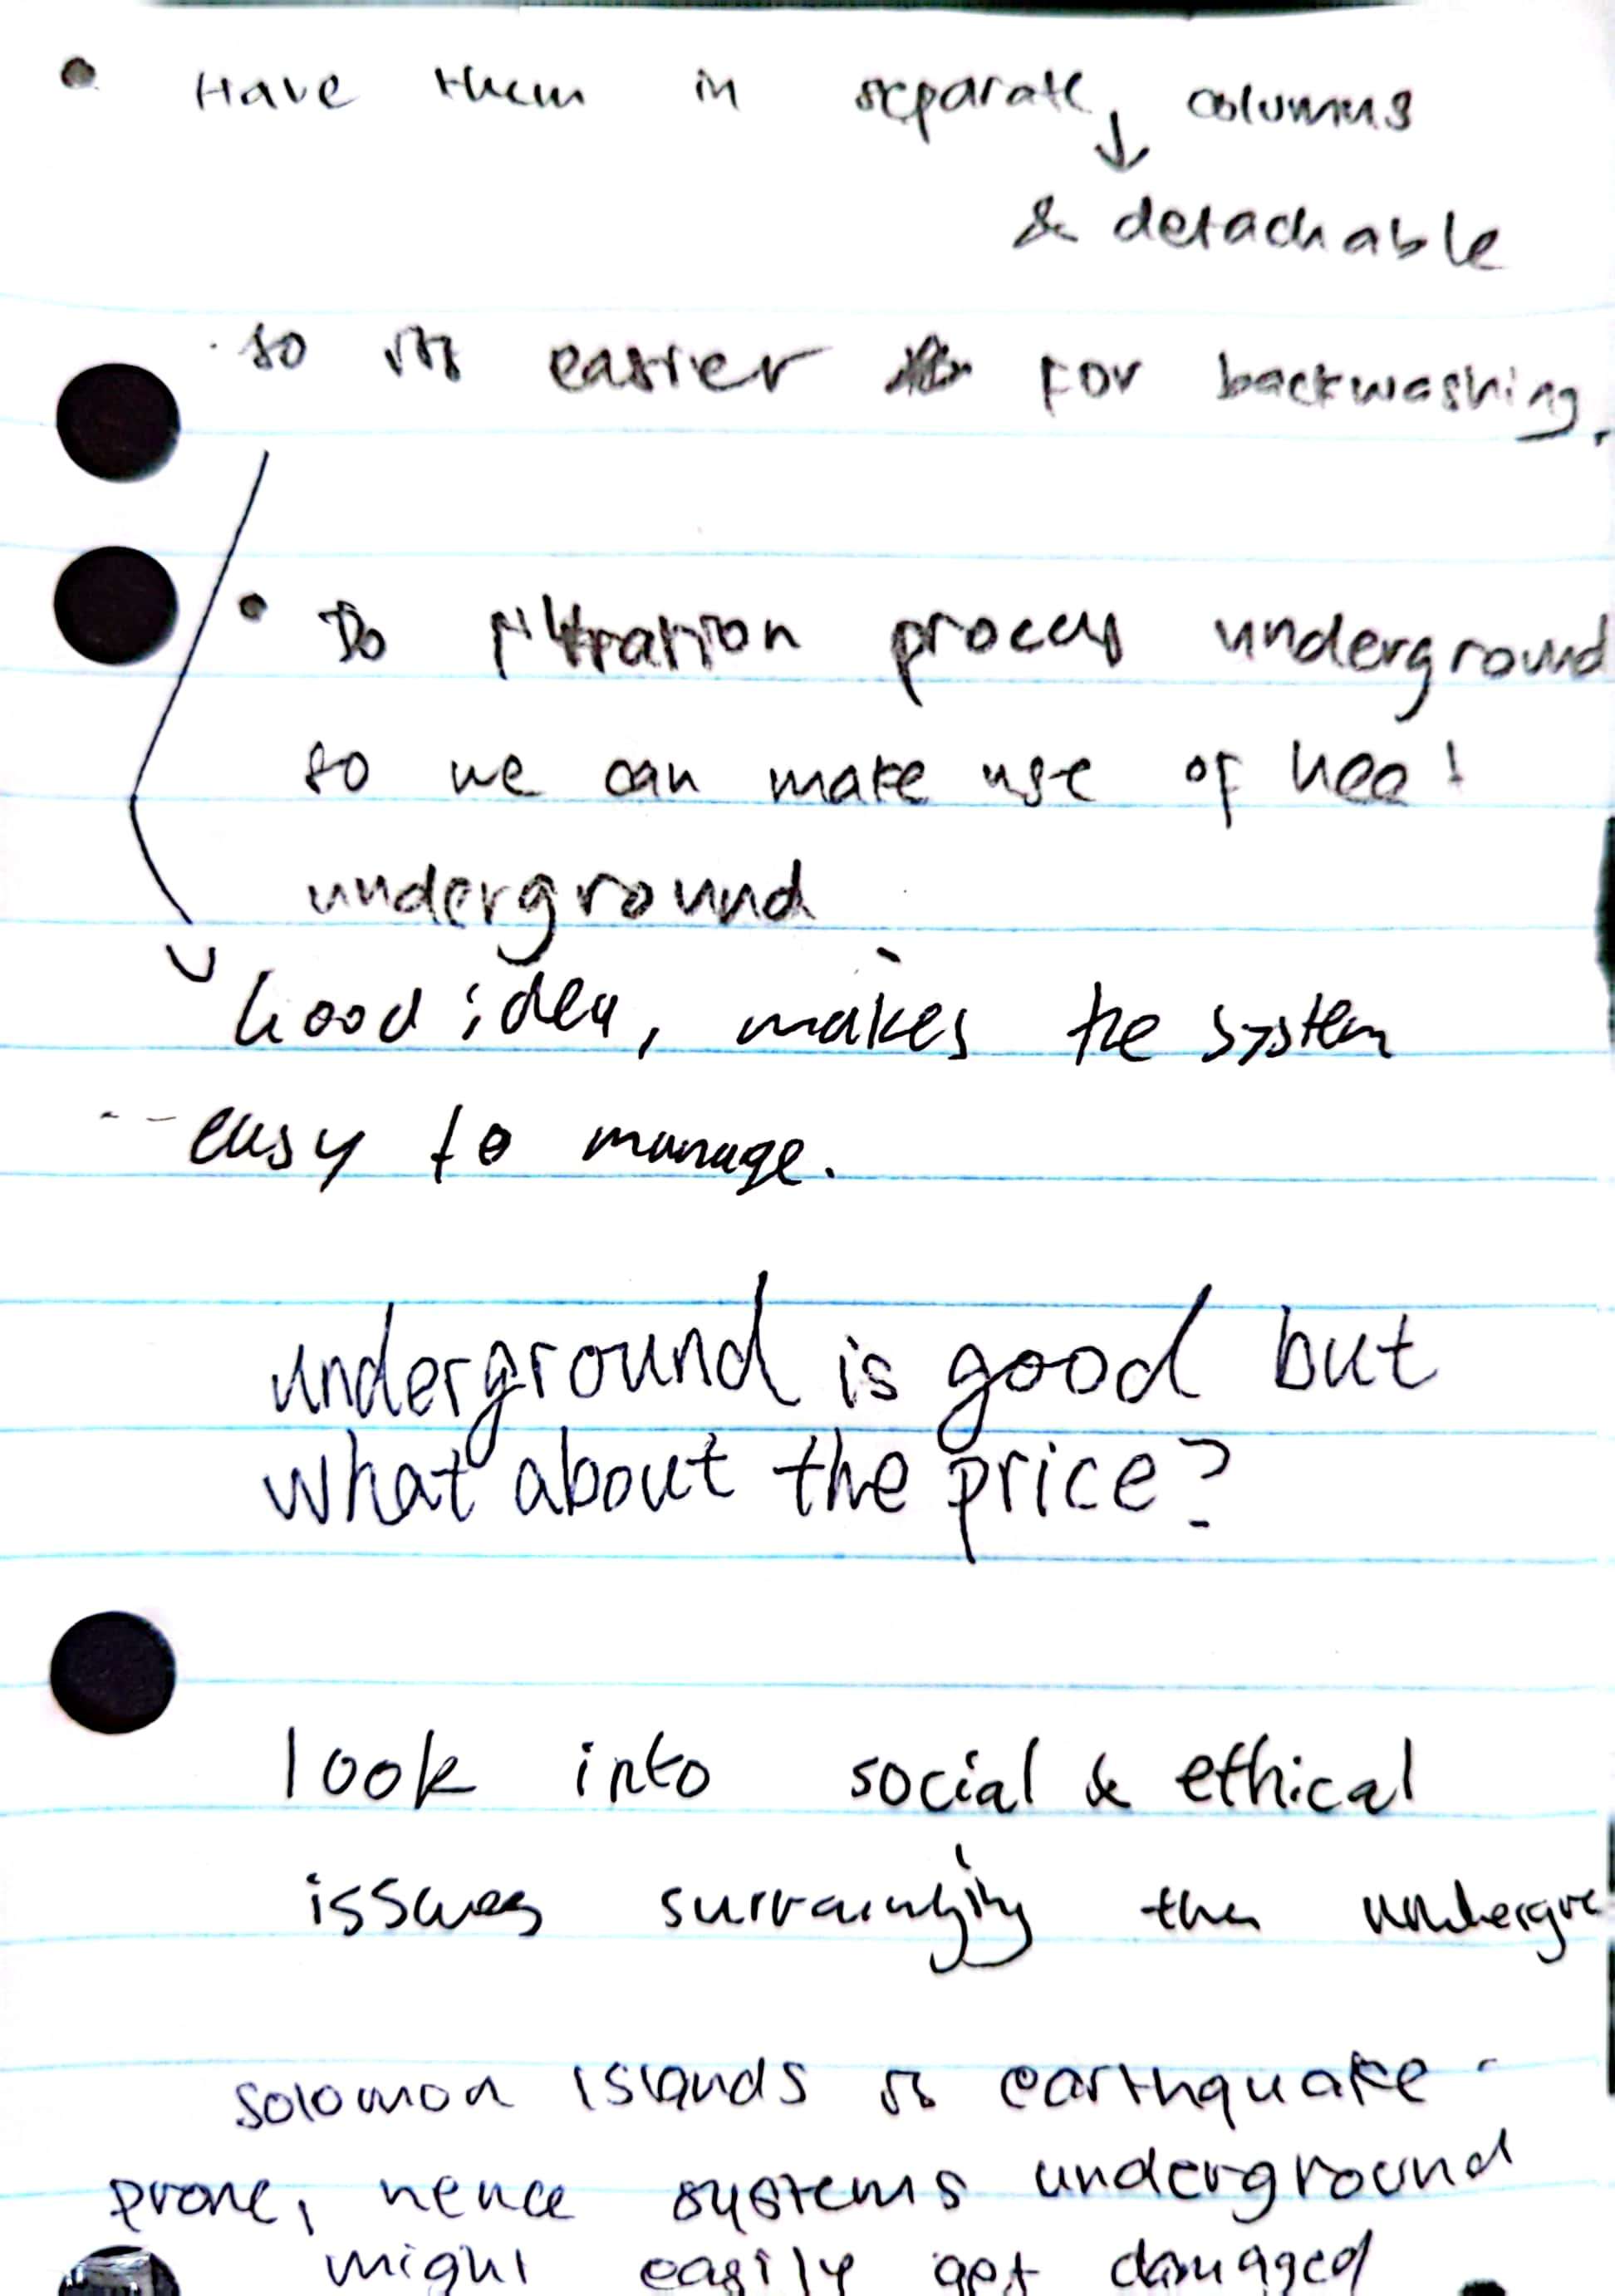 • Have them in separate columns
↓
& detachable
so its easier for backwashing.
• Do filtration process underground
so we can make use of heat
underground
Good idea, makes the system
easy to manage.
underground is good but
what about the price?
look into social & ethical
issues the
solomon islands is earthquake -
prone, hence systems underground
might easily get damaged